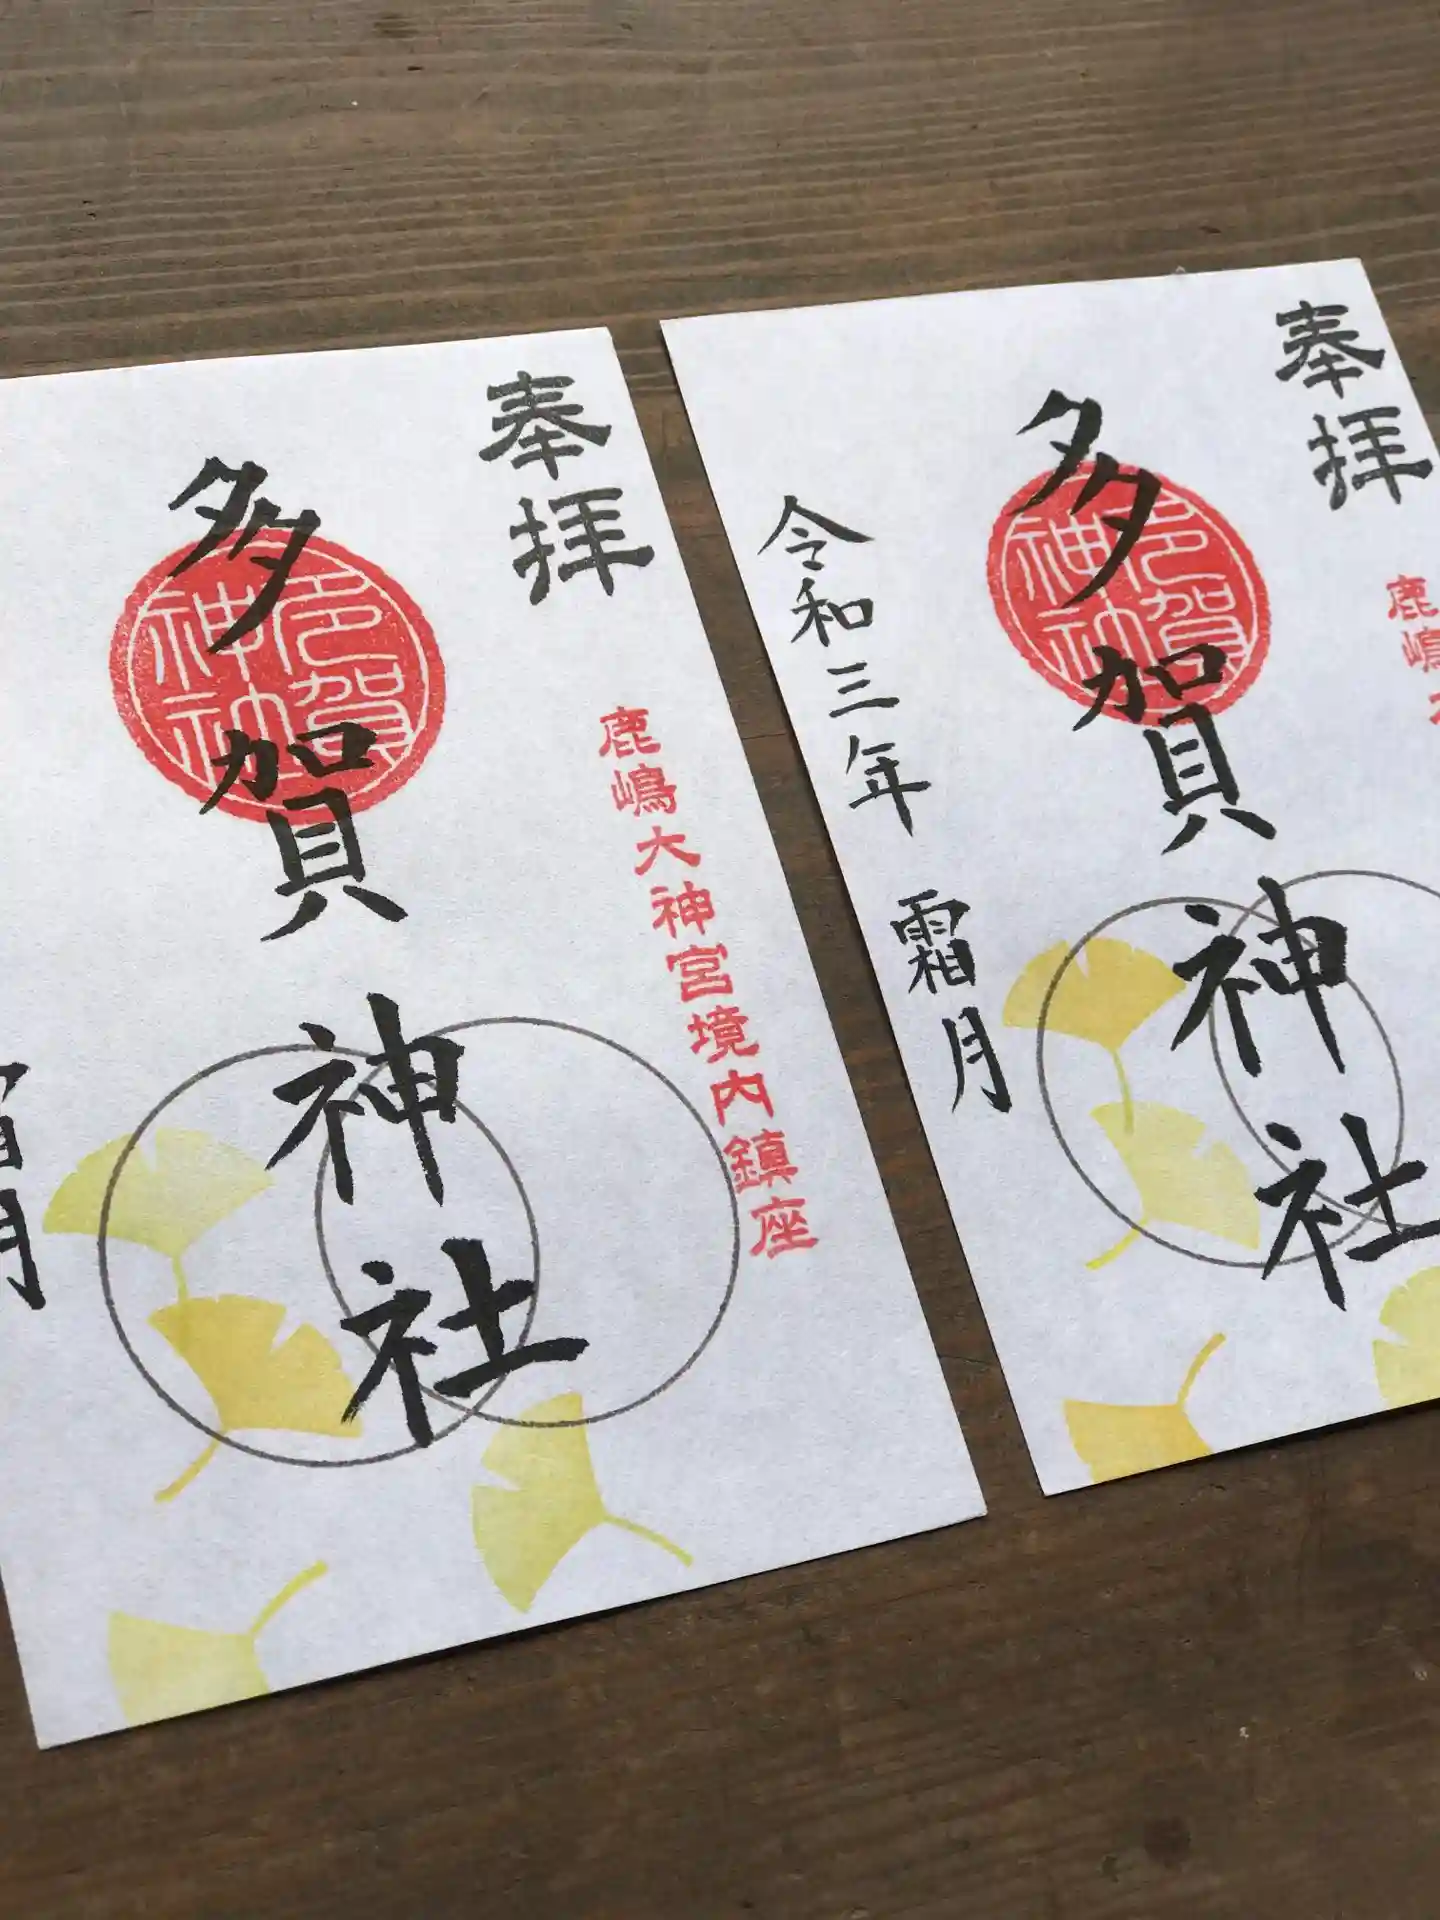 奉拝
鹿嶋大神宮境内鎮座
多賀神社
多賀神社
霜月
奉拝
鹿嶋
多賀神社
多賀神社
令和三年 霜月